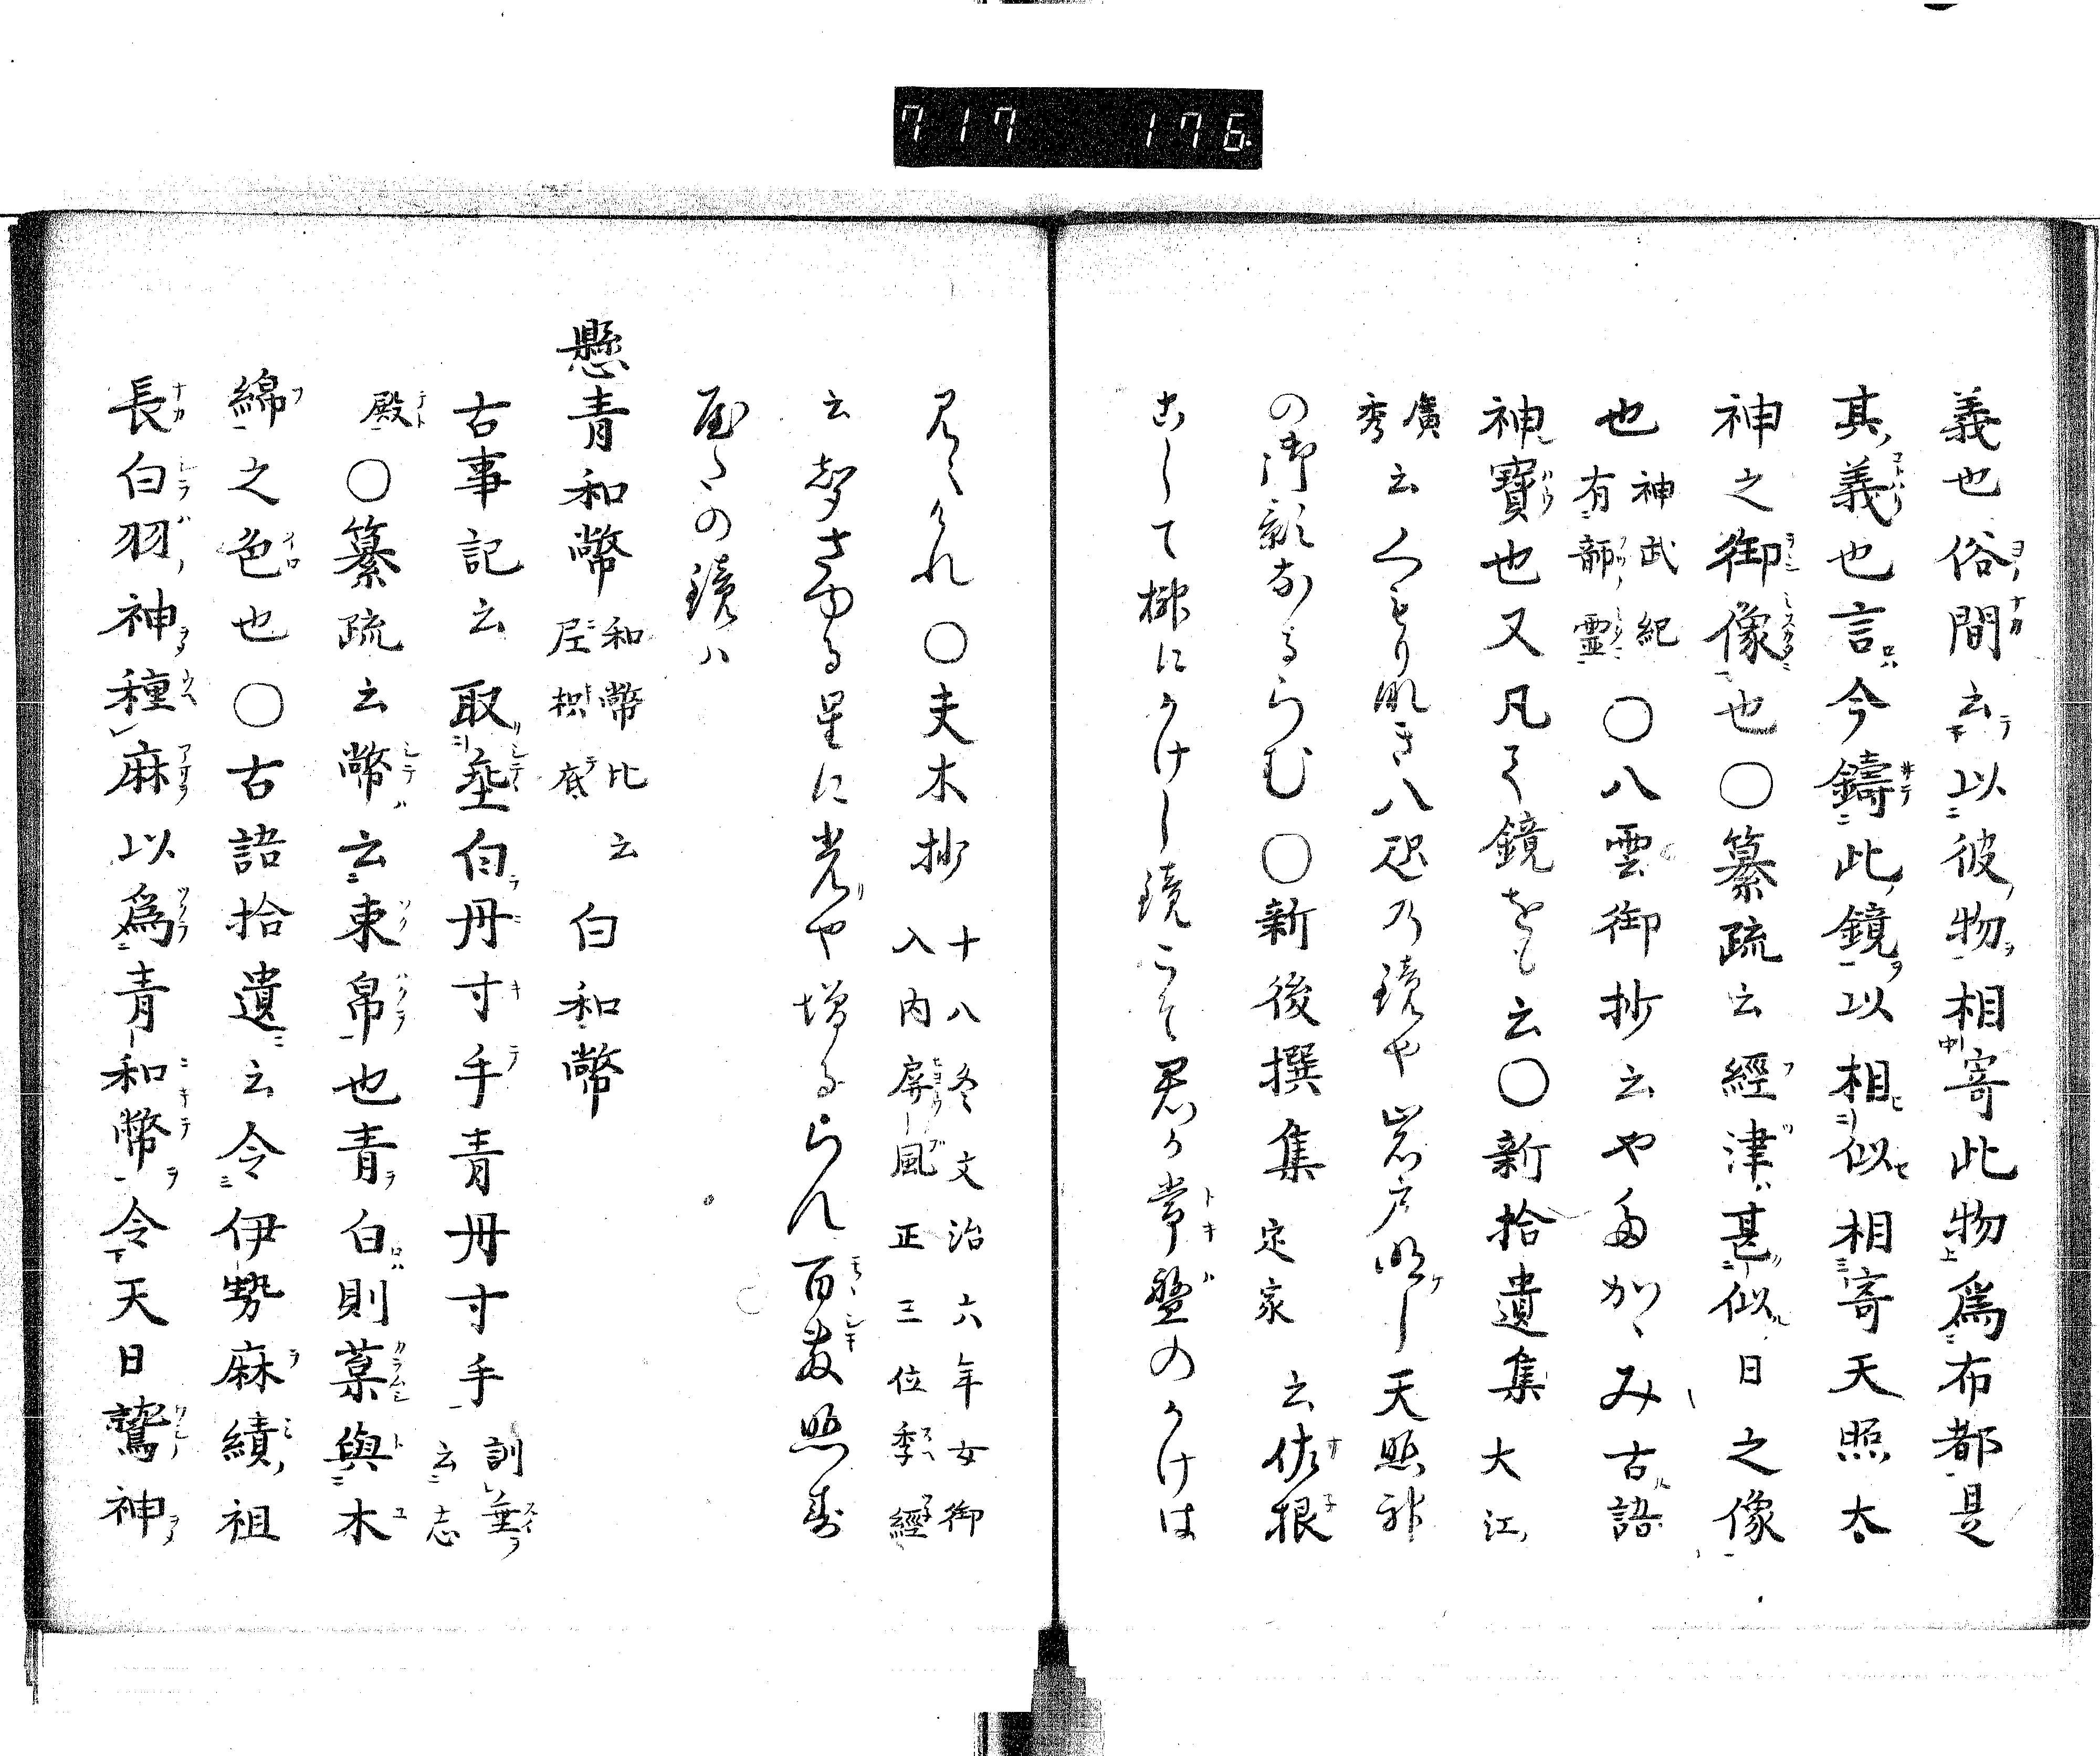 717 176
義也俗間云以彼物相寄此物爲布都是
其義也言今鑄此鏡以相似相寄天照太
神之御像也○纂疏云經津甚似日之像
也神武紀有韴霊○八雲御抄云やたかゝみ古語
神寶也又凡て鏡をも云○新拾遺集大江
廣秀云くもり那き八咫乃鏡や岩戸明し天照神
の御影なるらむ○新後撰集定家云佐根
こして榊にかけし鏡こそ君か常盤のかけは
見えけれ○夫木抄十八冬文治六年女御入内屏風正三位季經
云智さゆる星に光や増るらん百敷照す
屋たの鏡ハ
懸青和幣和幣比云尼枳底白和幣
古事記云取埀白丹寸手青丹寸手訓垂云志
殿○纂疏云幣云束帛也青白則菒與木
綿之色也○古語拾遺云令伊勢麻績祖
長白羽神種麻以爲青和幣令天日鷲神